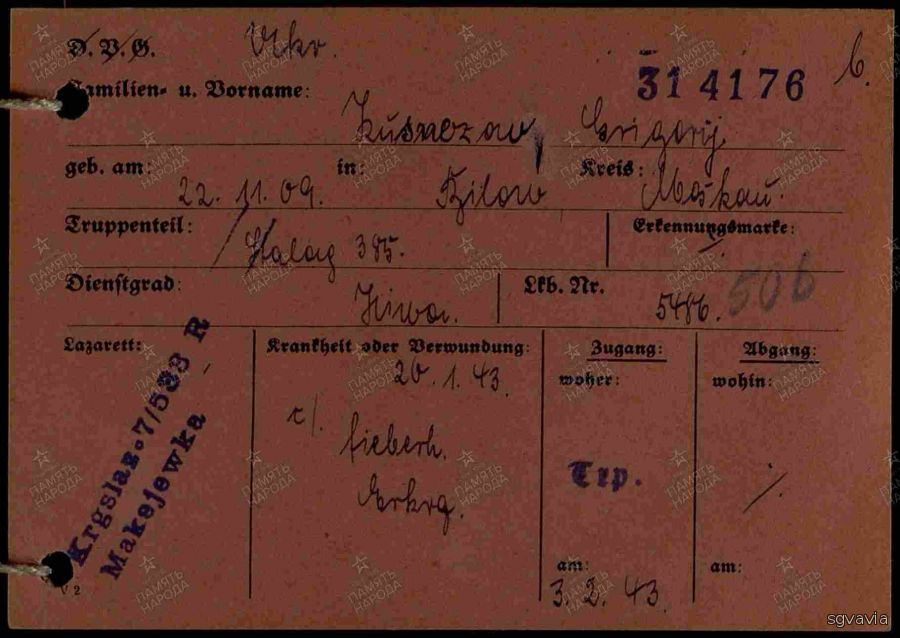 D. V. G. Ukr.
314176
Familien- u. Vorname:
Kusnezow, Grigorij
geb. am: 22.11.09. in: Kreis: Moskau.
Truppenteil: Stalag 385. Erkennungsmarke:
Dienstgrad: Hiwa. Lkb. Nr. 5486. 506
Lazarett: Krankheit oder Verwundung: Zugang: Abgang:
Krgslaz. 7/503 R
Makejewka
20.1.43.
fieberh.
Erkrg.
woher:
Trp.
am:
3.2.43.
wohin:
am:
V 2
ПАМЯТЬ НАРОДА
sgvavia